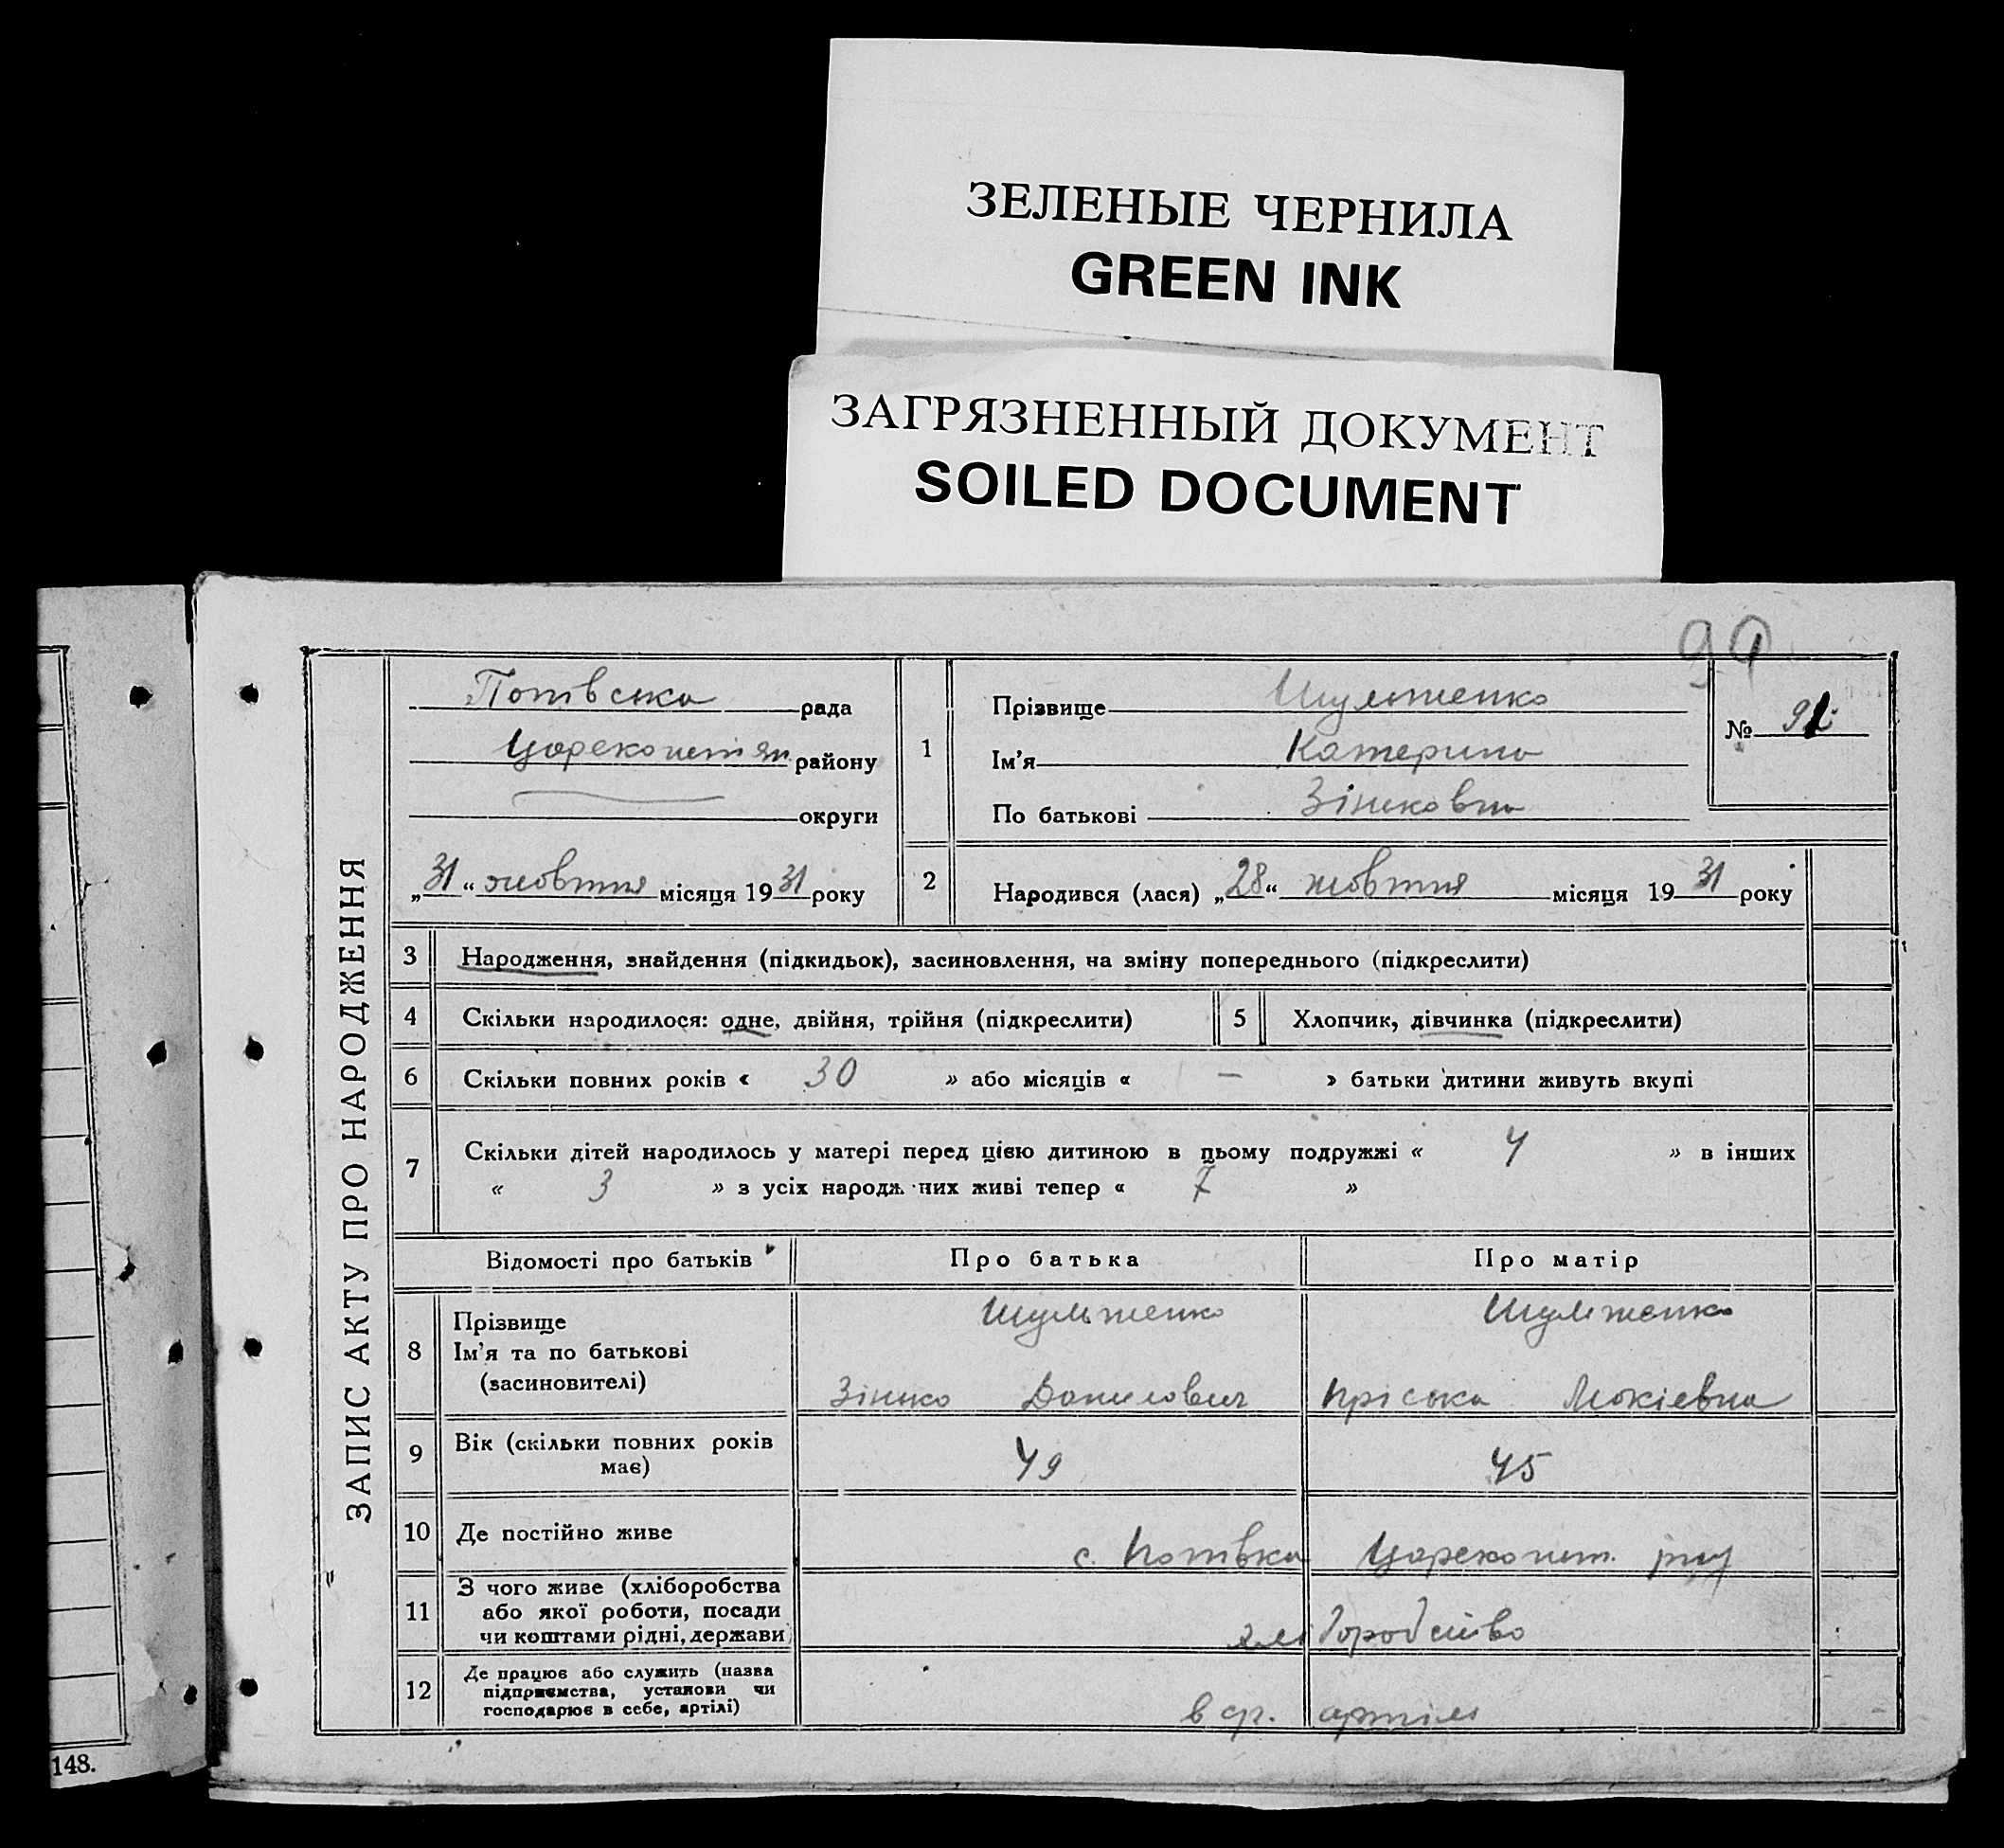 ЗЕЛЕНЫЕ ЧЕРНИЛА
GREEN INK
ЗАГРЯЗНЕННЫЙ ДОКУМЕНТ
SOILED DOCUMENT
148.
ЗАПИС АКТУ ПРО НАРОДЖЕННЯ
Потівська рада
району
округи
„31“ жовтня місяця 1931 року
1
Прізвище Шульженко
Ім'я Катерина
По батькові Зіньковна
№
2 Народився (лася) „28“ жовтня місяця 1931 року
3 Народження, знайдення (підкидьок), засиновлення, на зміну попереднього (підкреслити)
4 Скільки народилося: одне, двійня, трійня (підкреслити)
5 Хлопчик, дівчинка (підкреслити)
6 Скільки повних років « 30 » або місяців « — » батьки дитини живуть вкупі
7 Скільки дітей народилось у матері перед цією дитиною в цьому подружжі « 4 » в інших
« 3 » з усіх народж них живі тепер « 7 »
Відомості про батьків Про батька Про матір
8 Прізвище Шульженко Шульженко
Ім'я та по батькові
(засиновителі) Зінько Данилович Пріська Мокіевна
9 Вік (скільки повних років
має) 49 45
10 Де постійно живе с. Потівка Цареконст.
11 З чого живе (хліборобства
або якої роботи, посади
чи коштами рідні, держави хліборобство
12 Де працює або служить (назва
підприємства, установи чи
господарює в себе, артілі) в артілі